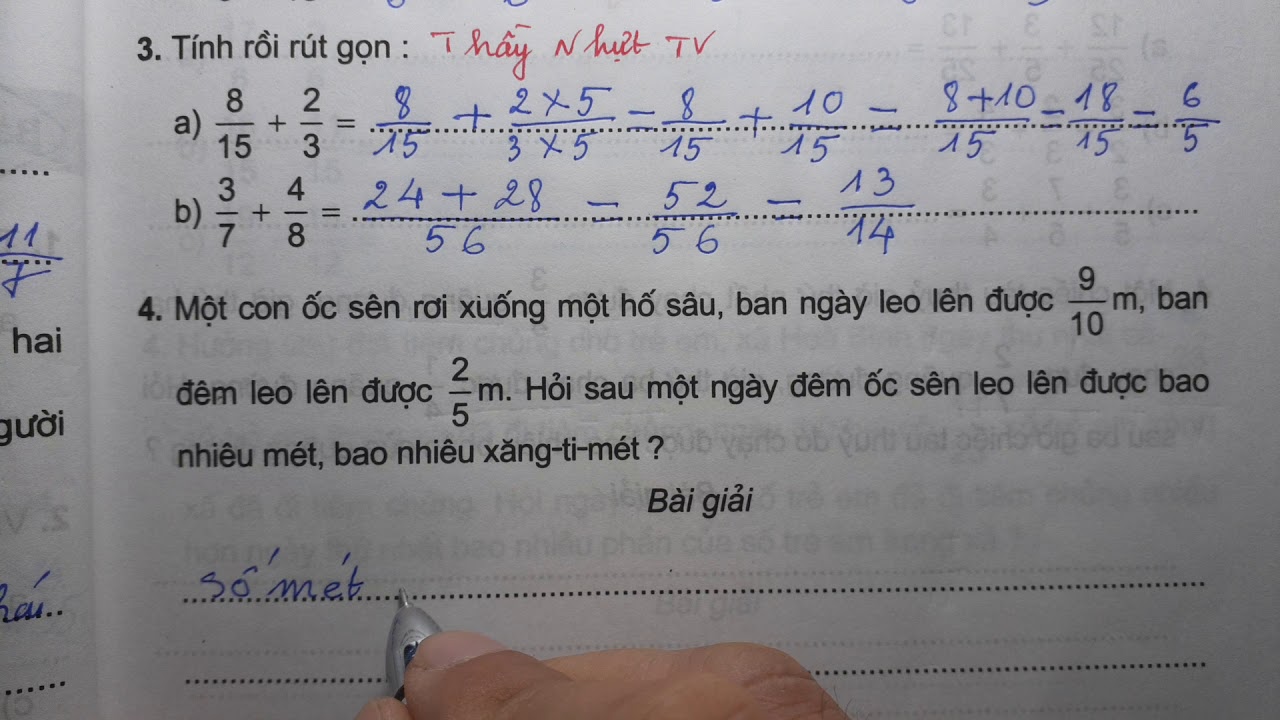 3. Tính rồi rút gọn : Thầy Nhựt TV
a) 8/15 + 2/3 = 8/15 + 2 x 5/3 x 5 = 8/15 + 10/15 = 8+10/15 = 18/15 = 6/5
b) 3/7 + 4/8 = 24 + 28/56 = 52/56 = 13/14
11/7
4. Một con ốc sên rơi xuống một hố sâu, ban ngày leo lên được 9/10 m, ban
hai
đêm leo lên được 2/5 m. Hỏi sau một ngày đêm ốc sên leo lên được bao
gười
nhiêu mét, bao nhiêu xăng-ti-mét ?
Bài giải
Số mét